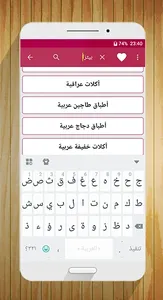 74% 23:40
بيتزا
أكلات عراقية
أطباق طاجين عربية
أطباق دجاج عربية
أكلات خفيفة عربية
ض ص ق ف غ ع ه خ ح ج
ش س ي ب ل ا ت ن م ك
ظ ط ذ د ز ر و ة ث
؟١٢٣ العربية تنفيذ